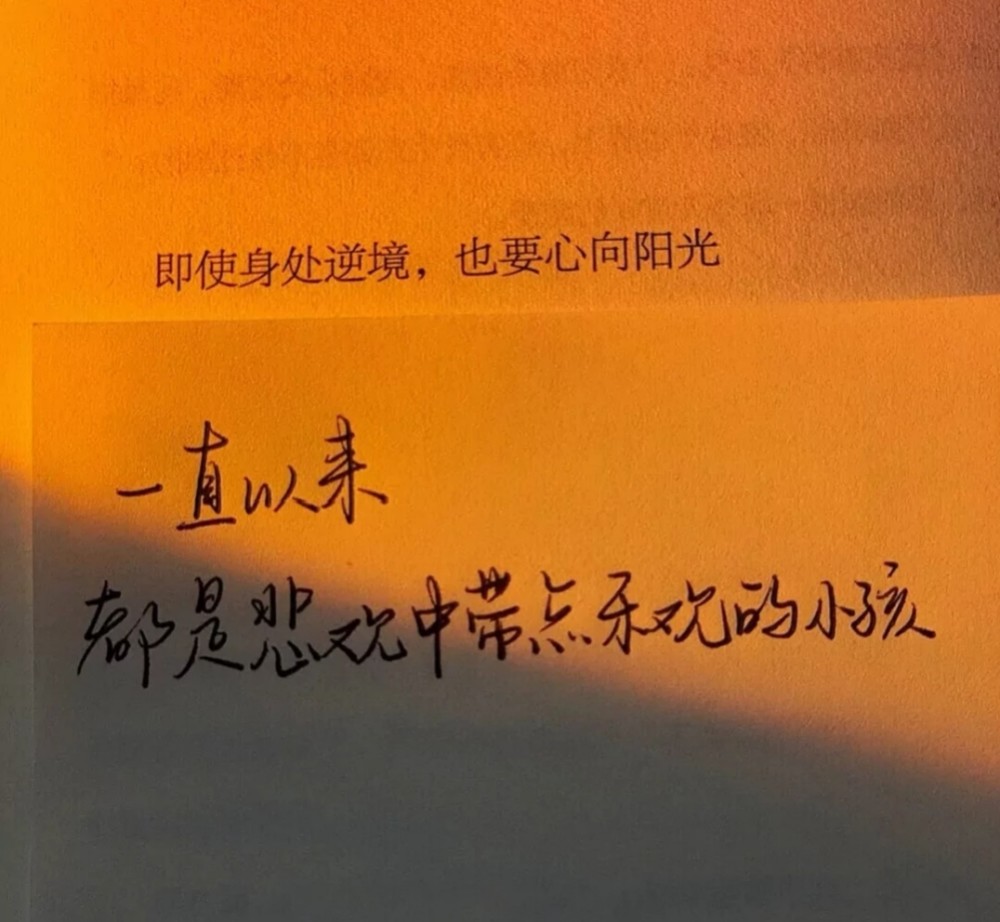 即使身处逆境，也要心向阳光
一直以来
都是悲观中带点乐观的小孩